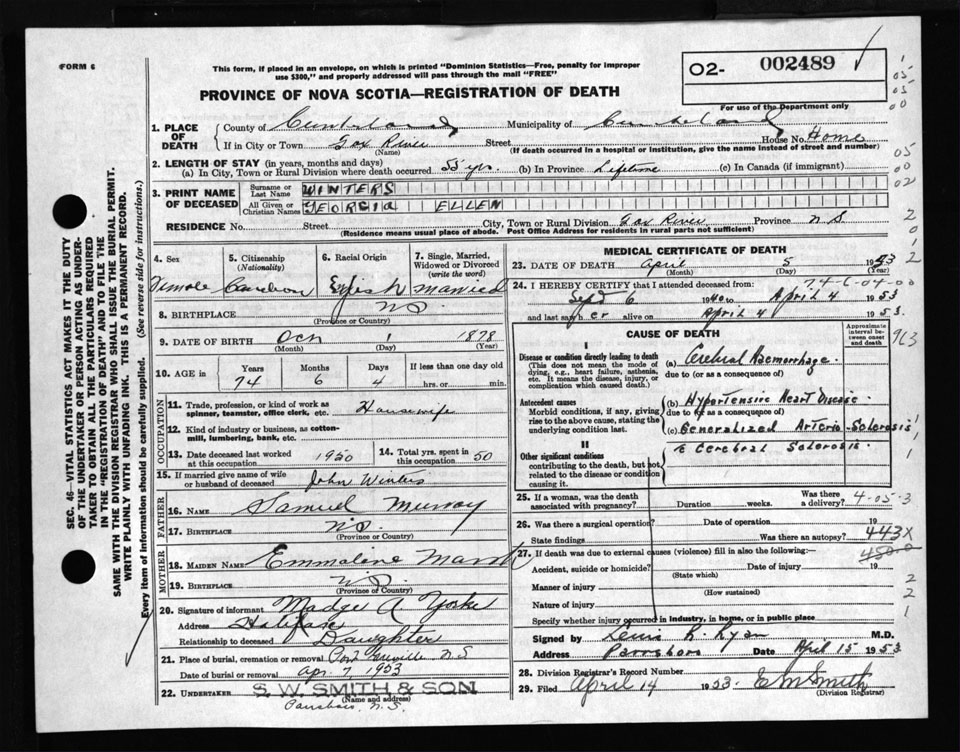 FORM 6
This form, if placed in an envelope, on which is printed "Dominion Statistics—Free, penalty for improper
use $300," and properly addressed will pass through the mail "FREE"
PROVINCE OF NOVA SCOTIA—REGISTRATION OF DEATH
O2- 002489
For use of the Department only
1. PLACE OF DEATH
County of Cumberland Municipality of Cumberland
If in City or Town Fox River Street House No. Home
(Name) (If death occurred in a hospital or institution, give the name instead of street and number)
2. LENGTH OF STAY (in years, months and days)
(a) In City, Town or Rural Division where death occurred 55 yrs. (b) In Province Lifetime (c) In Canada (if immigrant)
3. PRINT NAME OF DECEASED
Surname or Last Name WINTERS
All Given or Christian Names GEORGIA ELLEN
RESIDENCE No. Street City, Town or Rural Division Fox River Province N S
(Residence means usual place of abode. Post Office Address for residents in rural parts not sufficient)
SEC. 46—VITAL STATISTICS ACT MAKES IT THE DUTY
OF THE UNDERTAKER OR PERSON ACTING AS UNDER-
TAKER TO OBTAIN ALL THE PARTICULARS REQUIRED
IN THE "REGISTRATION OF DEATH" AND TO FILE THE
SAME WITH THE DIVISION REGISTRAR WHO SHALL ISSUE THE BURIAL PERMIT.
WRITE PLAINLY WITH UNFADING INK. THIS IS A PERMANENT RECORD.
Every item of information should be carefully supplied. (See reverse side for instructions.)
4. Sex
Female
5. Citizenship
(Nationality)
Canadian
6. Racial Origin
English
7. Single, Married,
Widowed or Divorced
(write the word)
married
8. BIRTHPLACE N.S.
(Province or Country)
9. DATE OF BIRTH Oct 1 1878
(Month) (Day) (Year)
10. AGE in Years Months Days If less than one day old
74 6 4 hrs. or min.
OCCUPATION
11. Trade, profession, or kind of work as
spinner, teamster, office clerk, etc. Housewife
12. Kind of industry or business, as cotton-
mill, lumbering, bank, etc.
13. Date deceased last worked
at this occupation 1950
14. Total yrs. spent in
this occupation 50
15. If married give name of wife
or husband of deceased John Winters
FATHER
16. NAME Samuel Murray
17. BIRTHPLACE N.S.
(Province or Country)
MOTHER
18. MAIDEN NAME Emmaline
19. BIRTHPLACE N.S.
(Province of Country)
20. Signature of informant Madge A Yorke
Address Halifax
Relationship to deceased Daughter
21. Place of burial, cremation or removal Port Greville N.S
Date of burial or removal Apr. 7, 1953
22. UNDERTAKER S. W. SMITH & SON
(Name and address)
Parrsboro, N.S.
MEDICAL CERTIFICATE OF DEATH
23. DATE OF DEATH April 5 1953
(Month) (Day) (Year)
74-6-04-00
24. I HEREBY CERTIFY that I attended deceased from:
Sept 6 1940 to April 4 1953
and last saw her alive on April 4 1953.
CAUSE OF DEATH
Approximate interval between onset and death
I
Disease or condition directly leading to death
(This does not mean the mode of
dying, e.g., heart failure, asthenia,
etc. It means the disease, injury, or
complication which caused death.)
(a) Cerebral Haemorrhage.
due to (or as a consequence of)
Antecedent causes
Morbid conditions, if any, giving
rise to the above cause, stating the
underlying condition last.
(b) Hypertensive Heart Disease.
due to (or as a consequence of)
(c) Generalized Arterio-Sclerosis
II
Other significant conditions
contributing to the death, but not
related to the disease or condition
causing it.
c Cerebral Sclerosis.
25. If a woman, was the death
associated with pregnancy? Was there a
delivery? 4-05-3
26. Was there a surgical operation? Date of operation 19
State findings Was there an autopsy? 443X
450.0
27. If death was due to external causes (violence) fill in also the following:—
Accident, suicide or homicide? Date of injury 19
(State which)
Manner of injury
(How sustained)
Nature of injury
Specify whether injury occurred in industry, in home, or in public place
Signed by Lewis R. Ryan M.D.
Address Parrsboro Date April 15 1953
28. Division Registrar's Record Number
29. Filed April 14 1953. E M Smith
(Division Registrar)
963